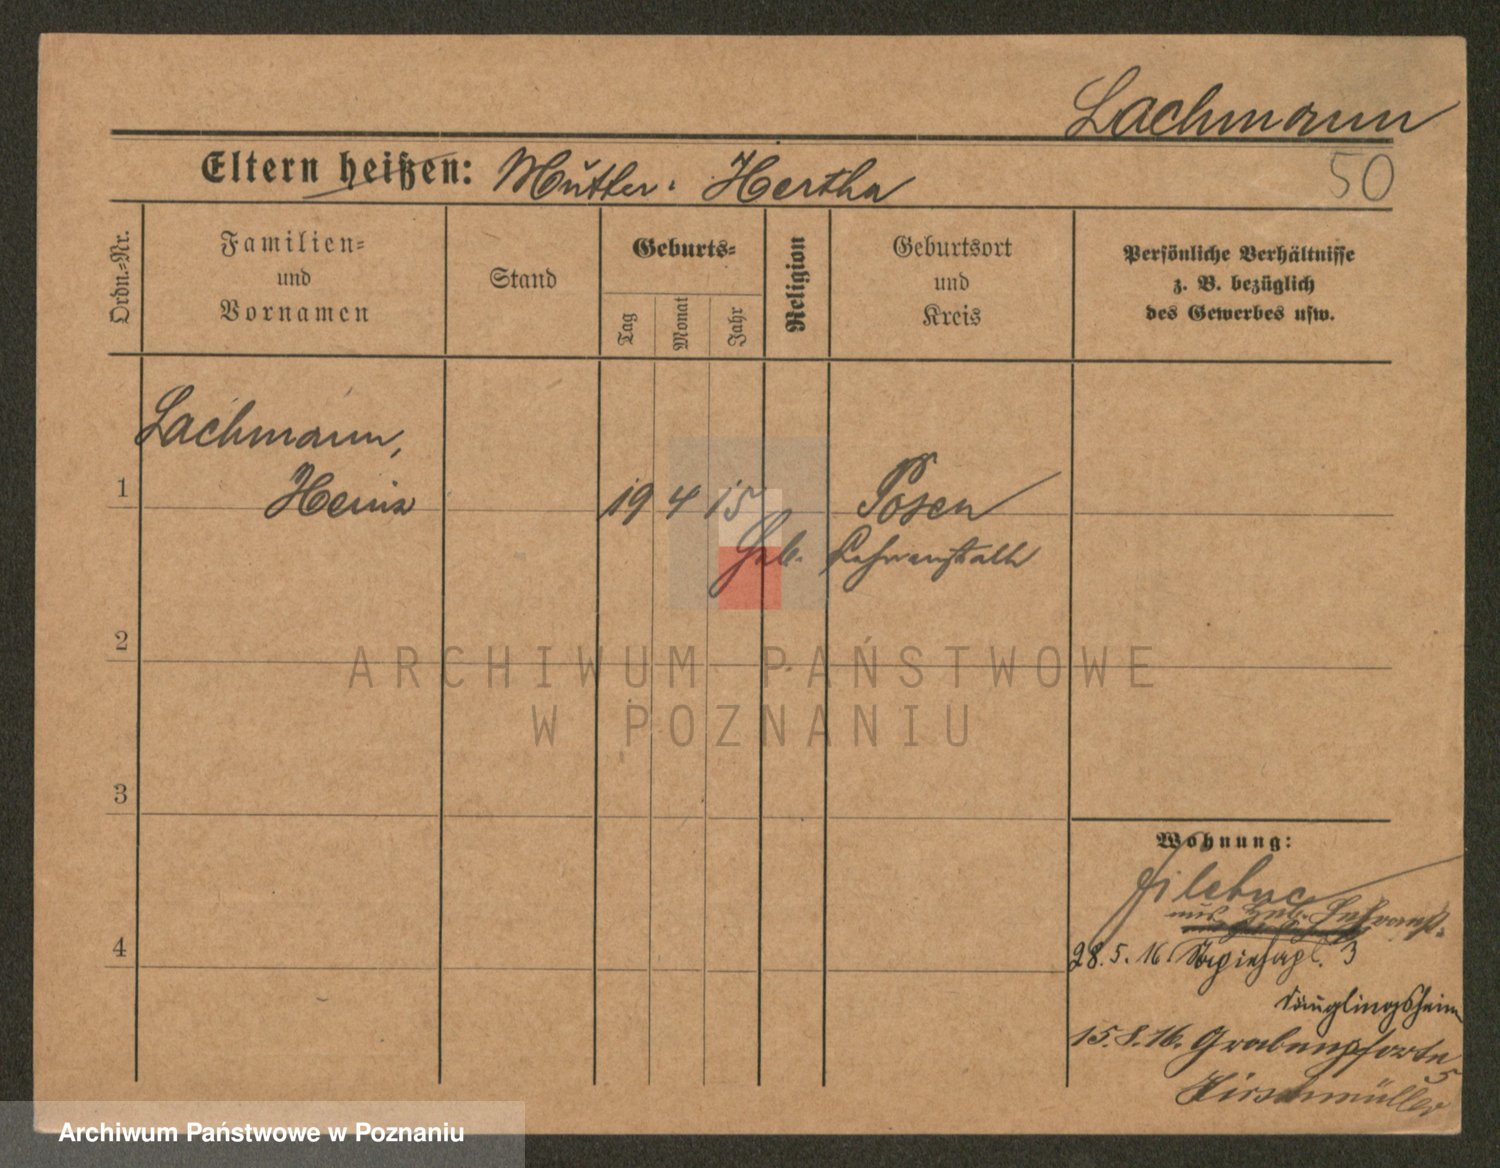 Lachmann
Eltern heißen: Mutter. Hertha
50
Ordn.=Nr.
Familien=
und
Vornamen
Stand
Geburts=
Tag
Monat
Jahr
Religion
Geburtsort
und
Kreis
Persönliche Verhältnisse
z. B. bezüglich
des Gewerbes usw.
Lachmann,
1
Heinz
19 4 15
Posen
Heb. Lehranstalt
2
ARCHIWUM PAŃSTWOWE
W POZNANIU
3
Wohnung:
aus Heb. Lehranst.
4
28. 5. 16. 3
Säuglingsheim
15. 8. 16. Grabenpforte
5
Hirschmüller
Archiwum Państwowe w Poznaniu